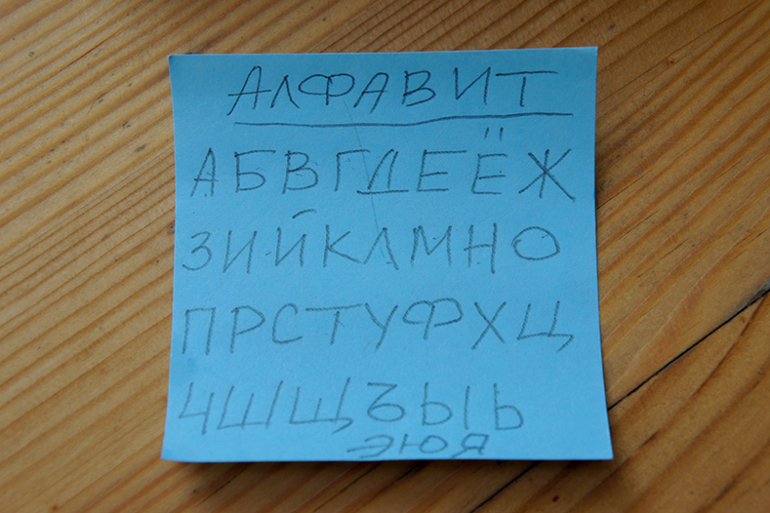 АЛФАВИТ
АБВГДЕЁЖ
ЗИЙКЛМНО
ПРСТУФХЦ
ЧШЩЪЫЬ
ЭЮЯ